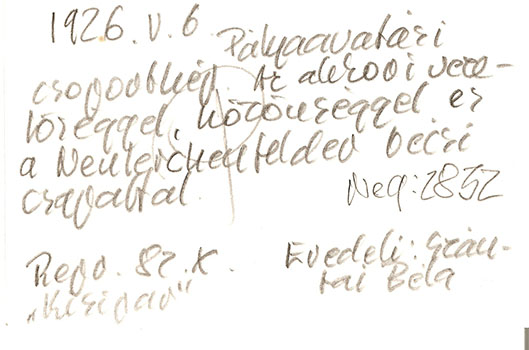 1926. V. 6.
Pályaavatási
csoportkép. Az akkori veze-
tőséggel, közönséggel és
a Neulerchenfelder bécsi
csapattal.
Neg: 2852
Repr. 82. X.
Eredeti: Szán-
tai Béla
"Kisipar"